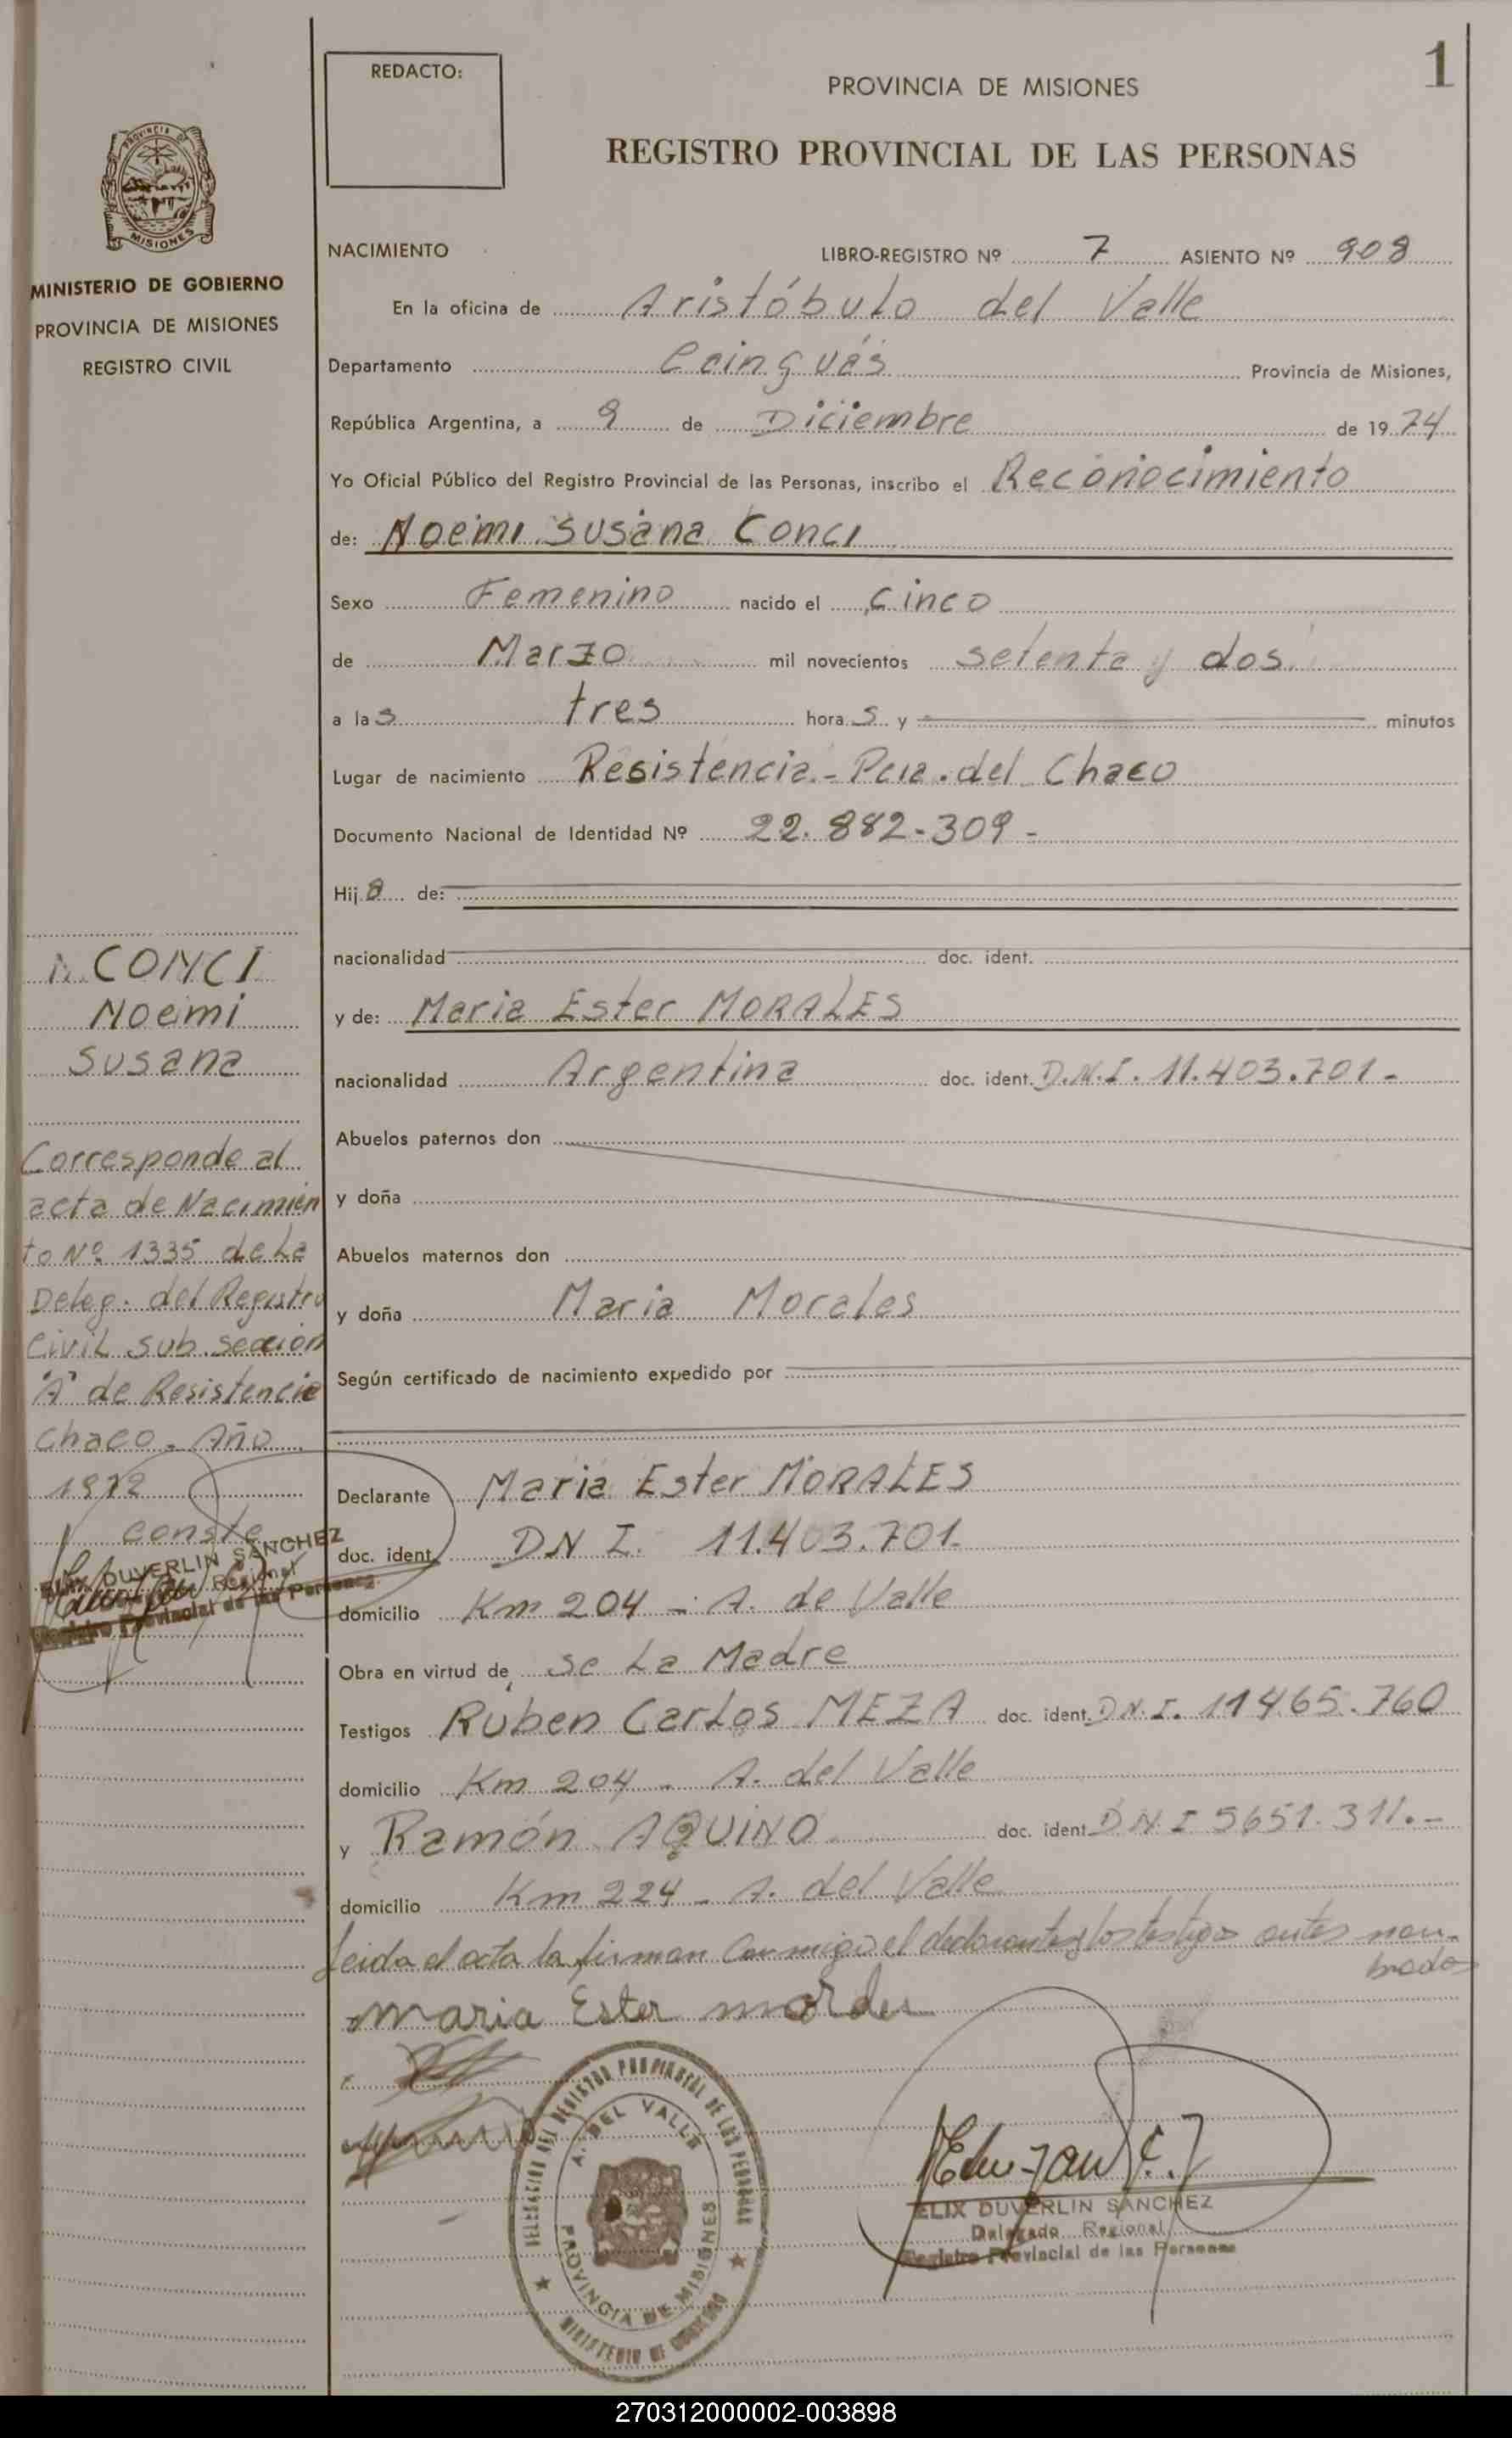 1
REDACTO:
PROVINCIA DE MISIONES
REGISTRO PROVINCIAL DE LAS PERSONAS
MISIONES
MINISTERIO DE GOBIERNO
PROVINCIA DE MISIONES
REGISTRO CIVIL
NACIMIENTO LIBRO-REGISTRO Nº 7 ASIENTO Nº 908
En la oficina de Aristóbulo del Valle
Departamento Cainguás Provincia de Misiones,
República Argentina, a 9 de Diciembre de 1974
Yo Oficial Público del Registro Provincial de las Personas, inscribo el Reconocimiento
de: Noemi Susana Conci
Sexo Femenino nacido el Cinco
de Marzo mil novecientos setenta y dos
a las tres horas y minutos
Lugar de nacimiento Resistencia.- Pcia. del Chaco
Documento Nacional de Identidad Nº 22.882.309-
Hija de:
nacionalidad doc. ident.
y de: Maria Ester MORALES
nacionalidad Argentina doc. ident. D.N.I. 11.403.701-
Abuelos paternos don
y doña
Abuelos maternos don
y doña Maria Morales
Según certificado de nacimiento expedido por
Declarante Maria Ester MORALES
doc. ident. DN I. 11.403.701-
domicilio Km 204 - A. de Valle
Obra en virtud de se La Madre
Testigos Ruben Carlos MEZA doc. ident. D.N.I. 11465.760
domicilio Km 204 - A. del Valle
y Ramón AQUINO doc. ident. D.N.I 5651.311.-
domicilio Km 224 - A. del Valle
Leida el acta la firman conmigo el declarante y los testigos antes nom-
brados
Maria Ester morales
CONCI
Noemi
Susana
Corresponde al
acta de Nacimien
to Nº 1335 de La
Deleg. del Registro
Civil sub. sección
"A" de Resistencia
Chaco. Año
1972
conste
ELIX DUVERLIN SANCHEZ
Regional
Registro Provincial de las Personas
REGISTRO PROVINCIAL DE LAS PERSONAS
A. DEL VALLE
PROVINCIA DE MISIONES
MINISTERIO DE GOBIERNO
ELIX DUVERLIN SANCHEZ
Delegado Regional
Registro Provincial de las Personas
270312000002-003898